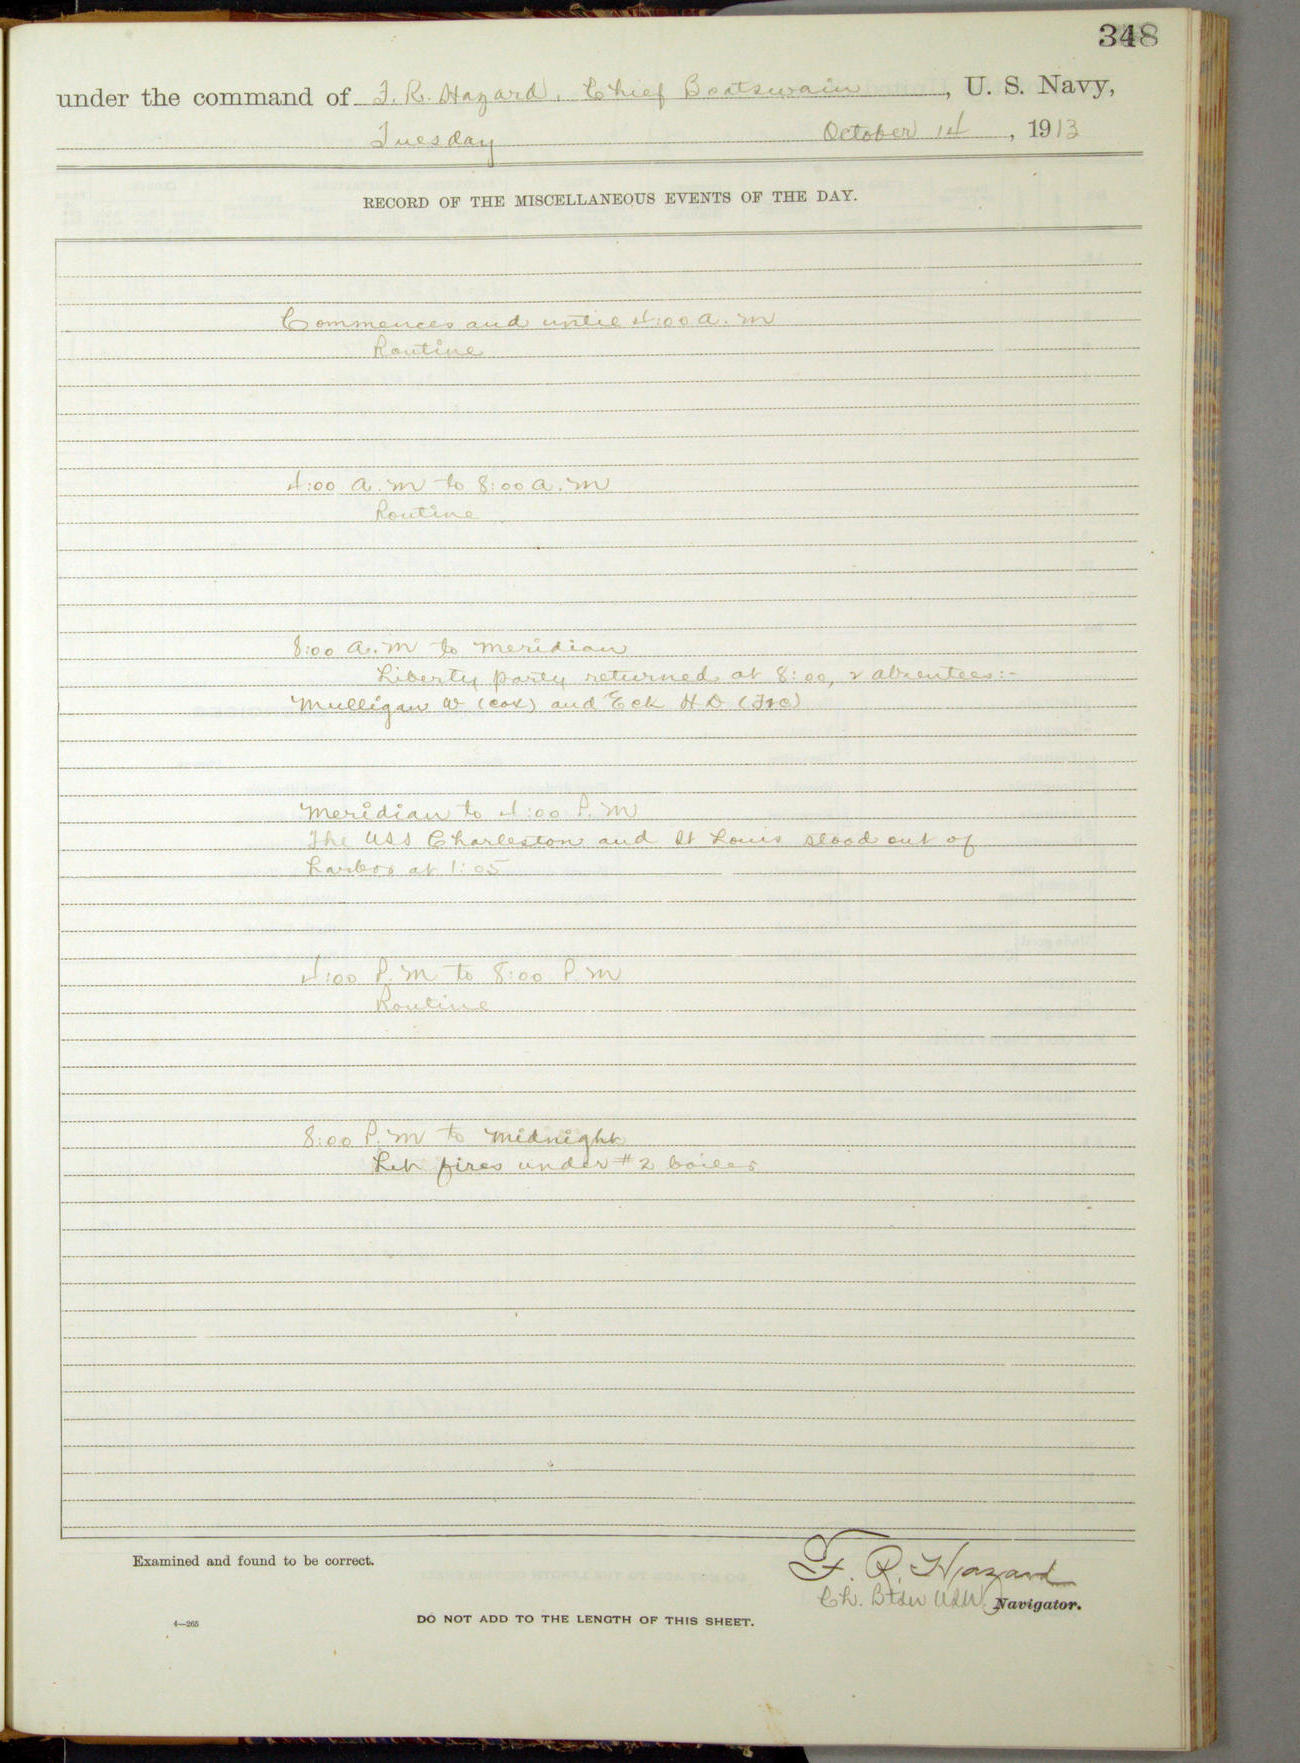 348
under the command of F. R. Hazard, Chief Boatswain, U. S. Navy,
Tuesday October 14, 1913
RECORD OF THE MISCELLANEOUS EVENTS OF THE DAY.
Commences and until 4:00 a.m
Routine
4:00 a.m to 8:00 a.m
Routine
8:00 a.m to meridian
Liberty party returned at 8:00, 2 absentees:-
Mulligan W (cox) and Eck H D
Meridian to 4:00 P.M
The USS Charleston and St Louis stood out of
harbor at 1:05
4:00 P.M to 8:00 P.M
Routine
8:00 P.M to midnight
Lit fires under #2 boiler
Examined and found to be correct.
F. R. Hazard
Ch. Btsn USN. Navigator.
4—265
DO NOT ADD TO THE LENGTH OF THIS SHEET.